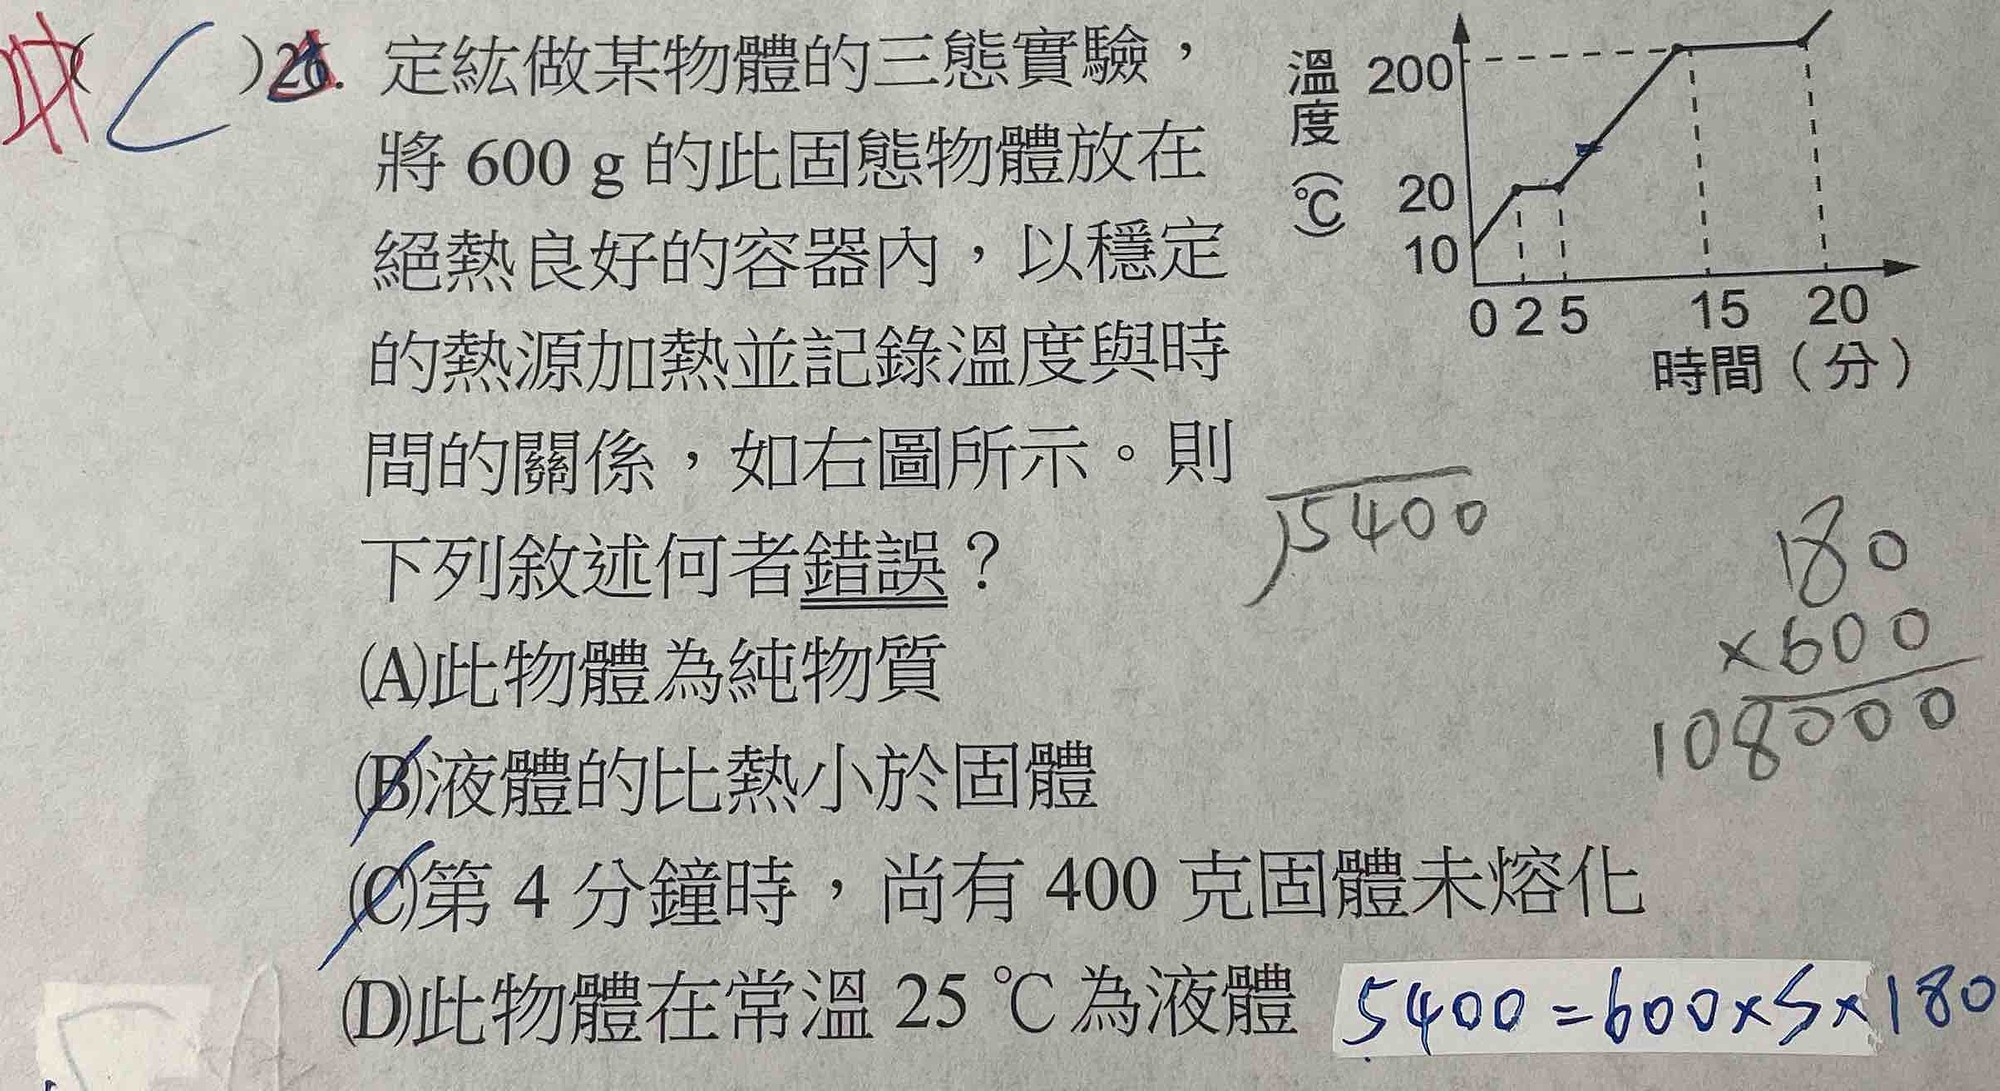 ( C )26. 定紘做某物體的三態實驗，
將 600 g 的此固態物體放在
絕熱良好的容器內，以穩定
的熱源加熱並記錄溫度與時
間的關係，如右圖所示。則
下列敘述何者錯誤？
(A)此物體為純物質
(B)液體的比熱小於固體
(C)第 4 分鐘時，尚有 400 克固體未熔化
(D)此物體在常溫 25 ℃為液體
溫度(℃)
200
20
10
0 2 5 15 20
時間（分）
5400
180
×600
108000
5400=600×S×180